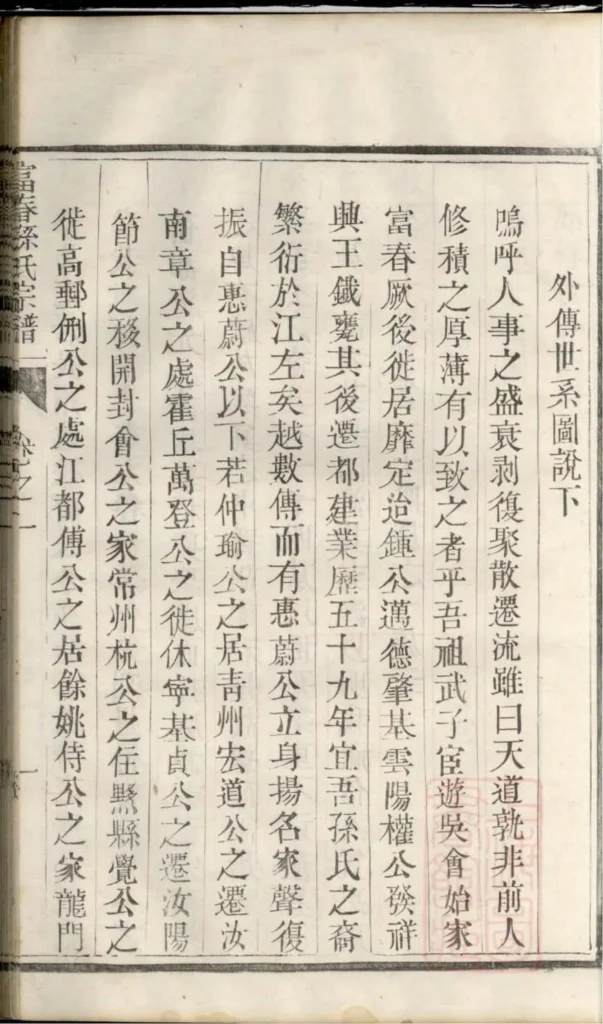 外傳世系圖說下
嗚呼人事之盛衰剥復聚散遷流雖曰天道孰非前人
修積之厚薄有以致之者乎吾祖武子宦遊吳會始家
富春厥後徙居靡定迨鍾公邁德肇基雲陽權公發祥
興王鐡甕其後遷都建業歷五十九年宜吾孫氏之裔
繁衍於江左矣越數傳而有惠蔚公立身揚名家聲復
振自惠蔚公以下若仲瑜公之居青州宏道公之遷汝
南章公之處霍丘萬登公之徙休寧基貞公之遷汝陽
節公之移開封會公之家常州杭公之住黟縣覺公之
徙高郵侀公之處江都傅公之居餘姚侍公之家龍門
富春孫氏宗譜
卷之一